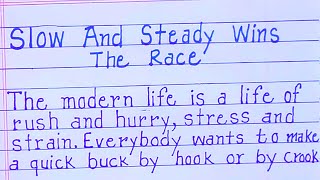 Slow And Steady Wins
The Race
The modern life is a life of
rush and hurry, stress and
strain. Everybody wants to make
a quick buck by hook or by crook